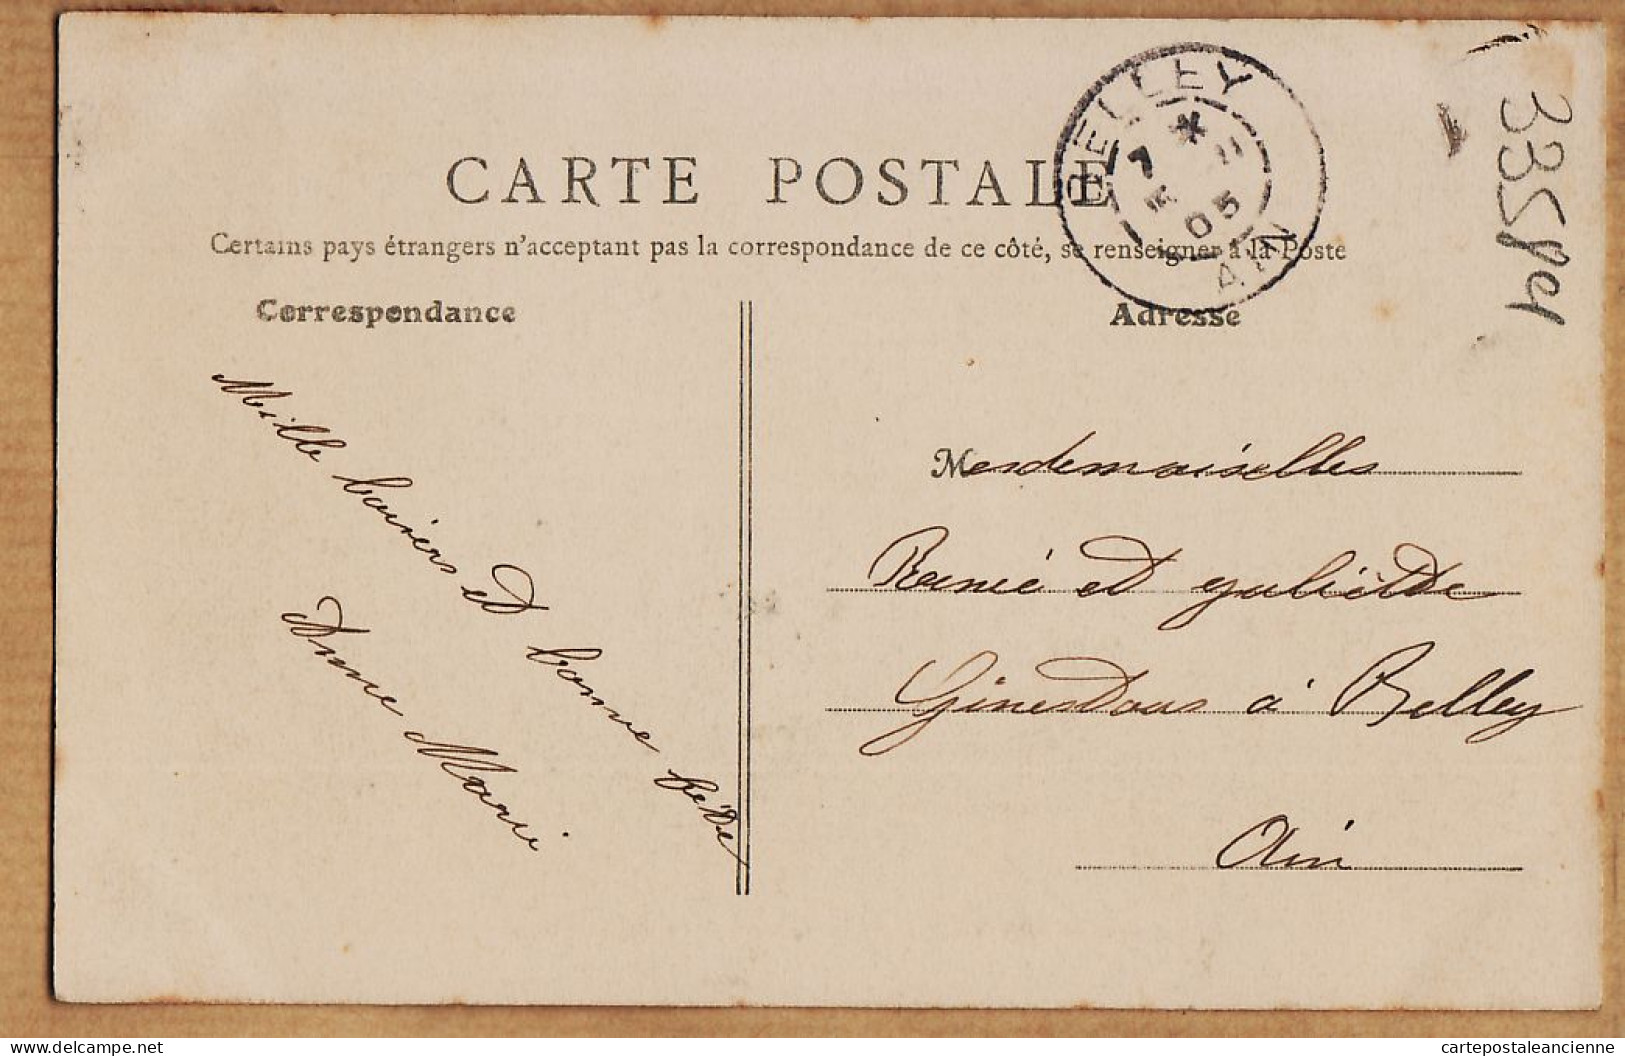 CARTE POSTALE
Certains pays étrangers n'acceptant pas la correspondance de ce côté, se renseigner à la Poste
BELLEY
7 *
05
AIN
Correspondance
Adresse
Mille baisers et bonne fête
Anne Marie
Mesdemoiselles
René et Juliette
Ginestous à Belley
Ain
delcampe.net
cartepostaleancienne